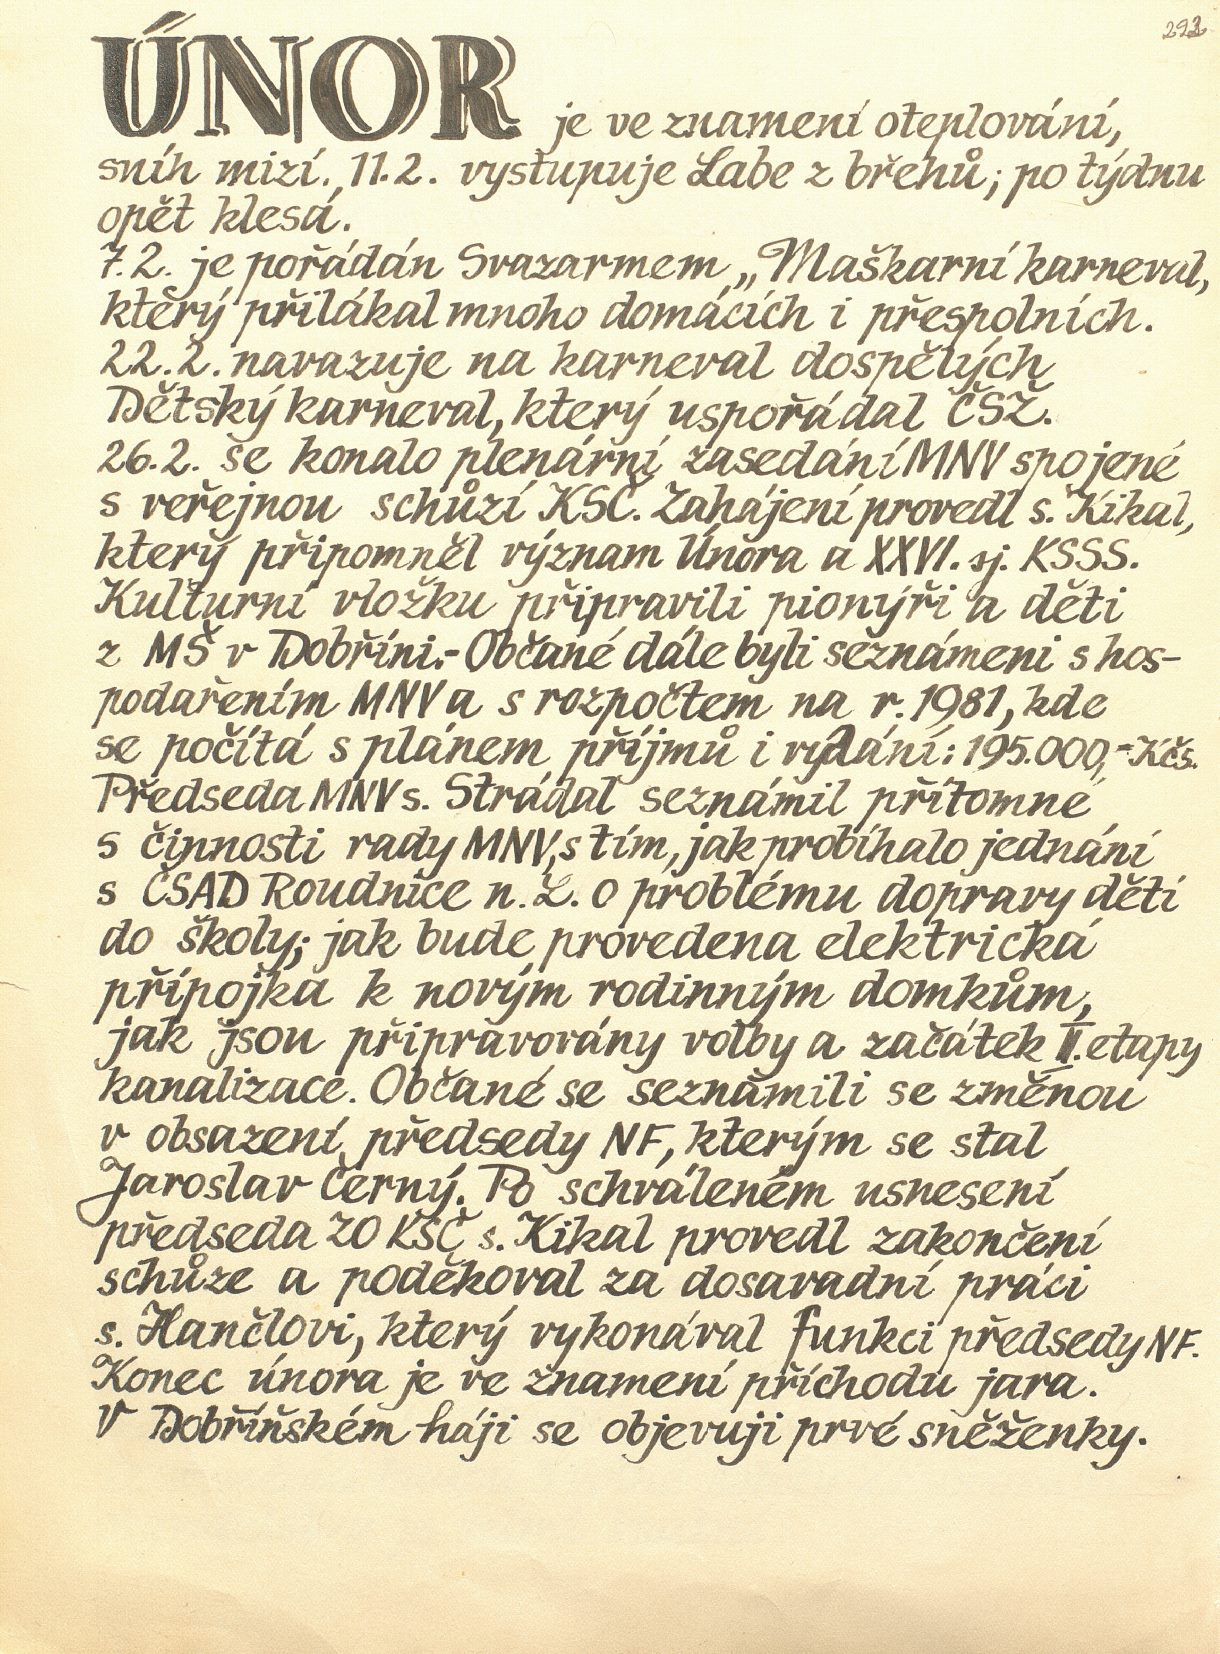 ÚNOR je ve znamení oteplování,
sníh mizí., 11.2. vystupuje Labe z břehů; po týdnu
opět klesá.
7.2. je pořádán Svazarmem „Maškarní karneval,
který přilákal mnoho domácích i přespolních.
22.2. navazuje na karneval dospělých
Dětský karneval, který uspořádal ČSŽ.
26.2. se konalo plenární zasedání MNV spojené
s veřejnou schůzí KSČ. Zahájení provedl s. Kikal,
který připomněl význam Února a XXVI. sj. KSSS.
Kulturní vložku připravili pionýři a děti
z MŠ v Dobříni.- Občané dále byli seznámeni s hos-
podařením MNV a s rozpočtem na r. 1981, kde
se počítá s plánem příjmů i vydání: 195.000,-Kčs.
Předseda MNV s. Strádal seznámil přítomné
s činnosti rady MNV, s tím, jak probíhalo jednání
s ČSAD Roudnice n. L. o problému dopravy dětí
do školy; jak bude provedena elektrická
přípojka k novým rodinným domkům,
jak jsou připravovány volby a začátek II. etapy
kanalizace. Občané se seznámili se změnou
v obsazení předsedy NF, kterým se stal
Jaroslav Černý. Po schváleném usnesení
předseda ZO KSČ s. Kikal provedl zakončení
schůze a poděkoval za dosavadní práci
s. Hančlovi, který vykonával funkci předsedy NF.
Konec února je ve znamení příchodu jara.
V Dobříňském háji se objevují prvé sněženky.